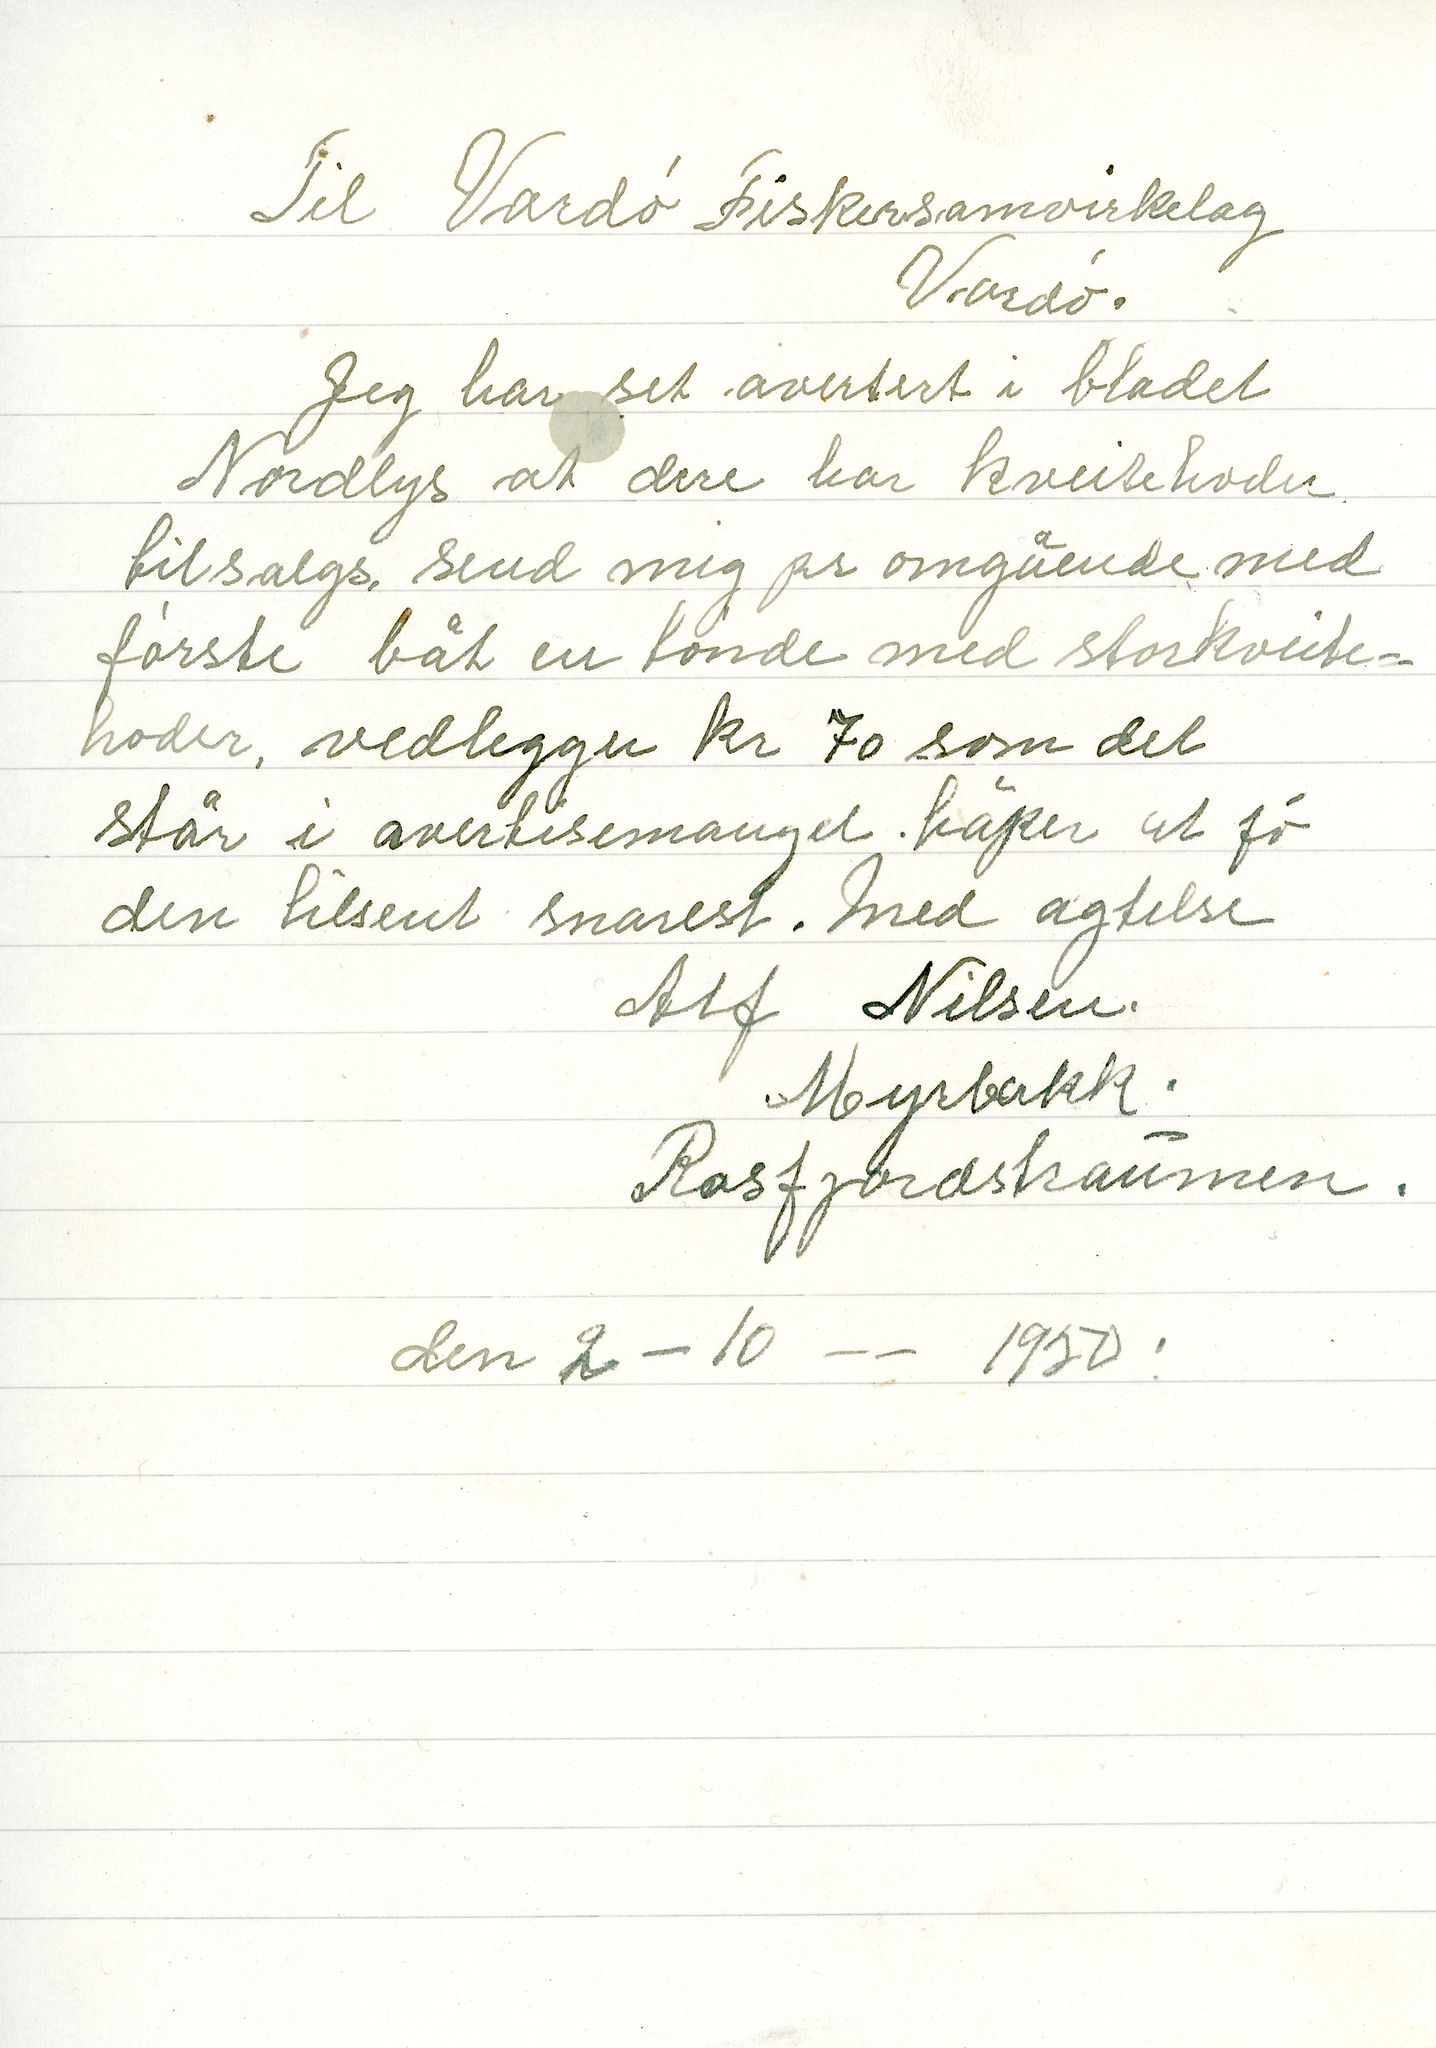 Til Vardó Fiskersamvirkelag
Vardó.
Jeg har set avertert i bladet
Nordlys at dere har kveitehoder
tilsalgs, send mig pr omgående med
fórste båt en tónde med storkveite=
hoder, vedlegger kr 70 som det
står i avertisemanget. håper at få
den tilsent snarest. Med agtelse
Alf Nilsen.
Myrbakk.
Rosfjordstraumen.
den 2 – 10 – – 1950.